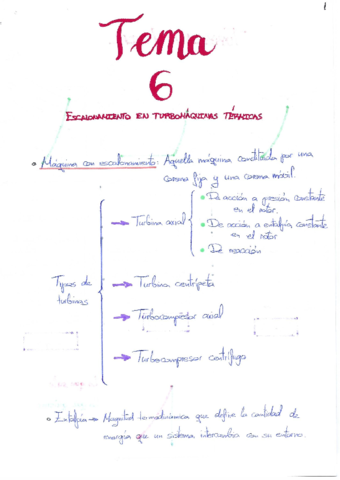 1
Tema
6
ESCALONAMIENTO EN TURBOMÁQUINAS TÉRMICAS
• Máquina con escalonamiento: Aquella máquina constituida por una
corona fija y una corona móvil.
• De acción a presión constante
en el rotor.
→ Turbina axial
• De acción a entalpía constante
en el rotor
• De reacción
Tipos de
turbinas
→ Turbina centrípeta
→ Turbocompresor axial
→ Turbocompresor centrífugo
• Entalpía → Magnitud termodinámica que define la cantidad de
energía que un sistema intercambia con su entorno.